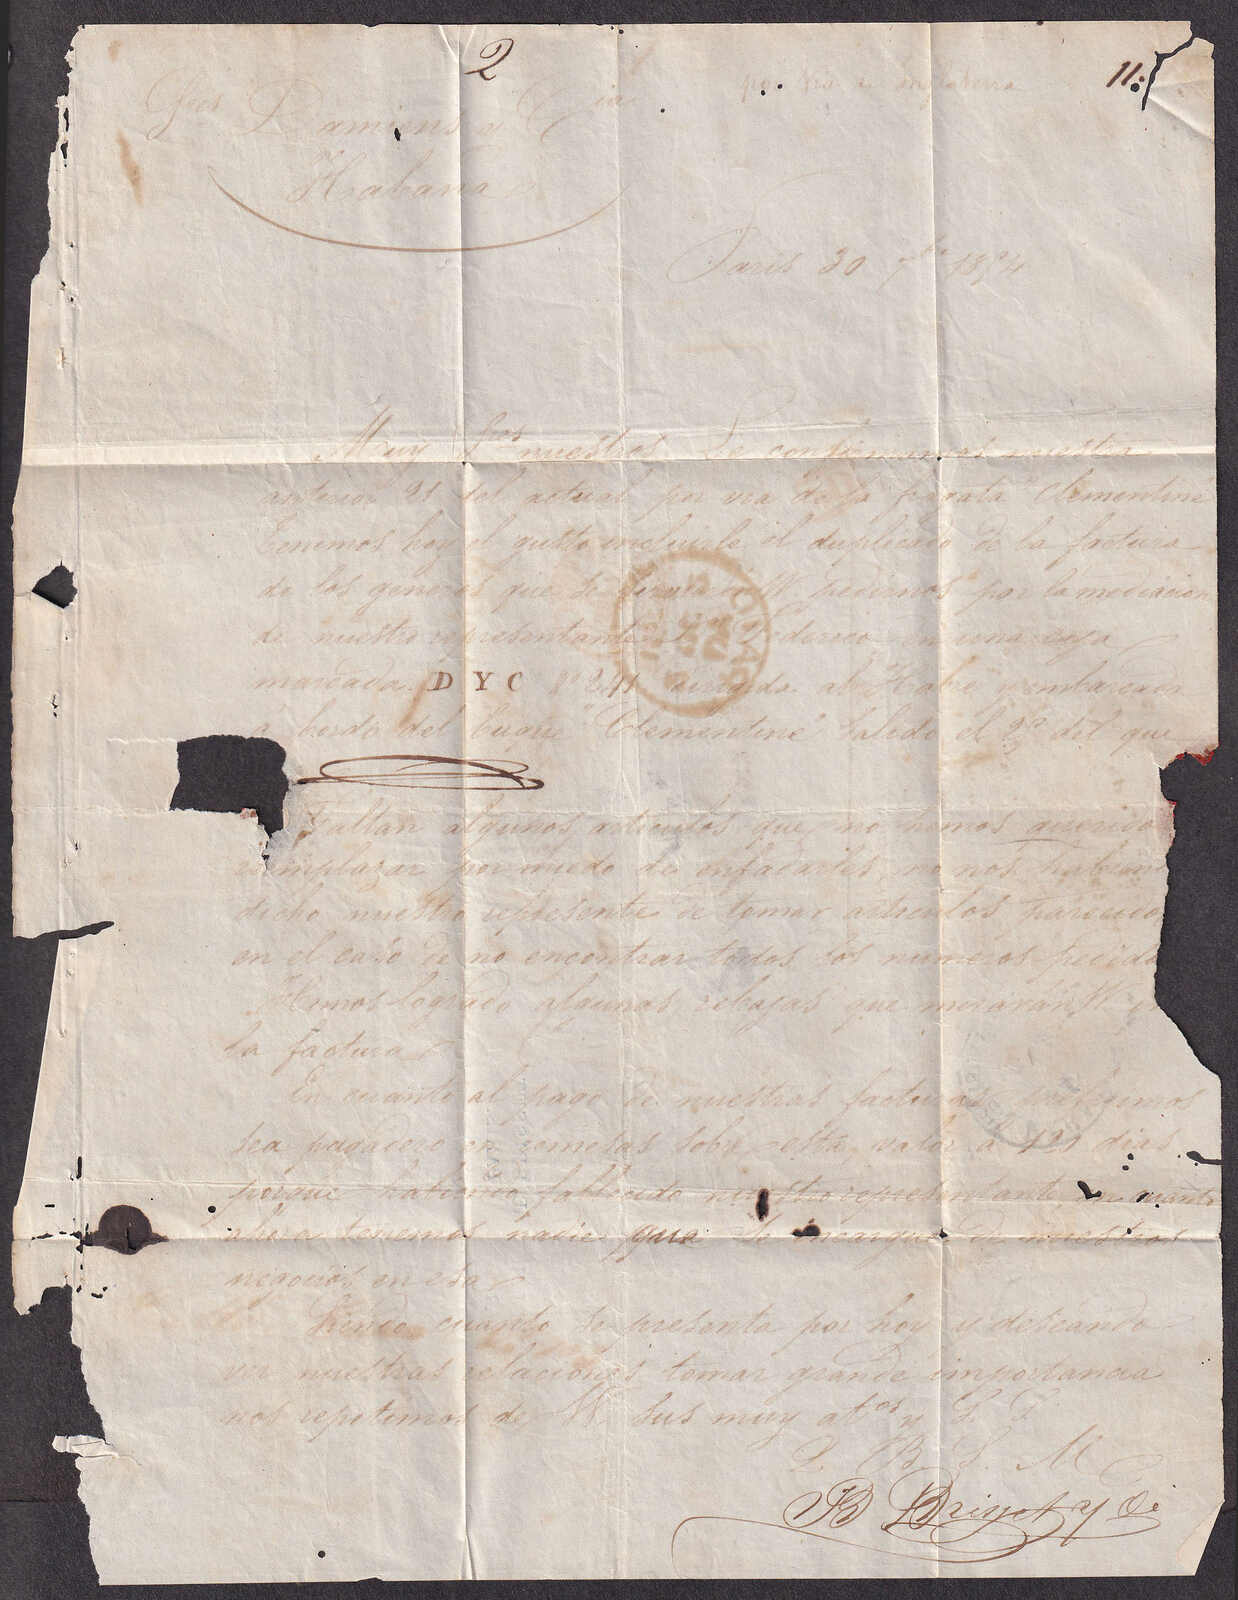 2
11.
Sres Damiens y Cia
por via de Inglaterra
Habana
Paris 30 7bre 1854
Muy Sres nuestros Le confirmamos nuestra
anterior 21 del actual por via de la fragata Clementine
Tenemos hoy el gusto incluirle el duplicado de la factura
de los generos que se VV pedirnos por la mediacion
de nuestro representante Sr Federico en una caja
marcada D Y C no 241 dirigida al Habre y embarcada
a bordo del buque "Clementine" salido el del que
Faltan algunos articulos que no hemos querido
remplazar por miedo de enfadarles, no nos habiendo
dicho nuestro represente de tomar articulos parecido
en el caso de no encontrar todos los numeros pedido
Hemos logrado algunas rebajas que miraran VV en
la factura
En cuanto al pago de nuestras facturas preferimos
sea pagadero en remesas sobre esta, valor a 120 dias
porque habiendo fallecido nuestro representante en cuanto
ahora tenemos nadie que se encargue de nuestros
negocios en esa
Siendo cuanto se presenta por hoy y deseando
ver nuestras relaciones tomar grande importancia
nos repetimos de VV sus muy atos y S. S.
Q. B. S. M